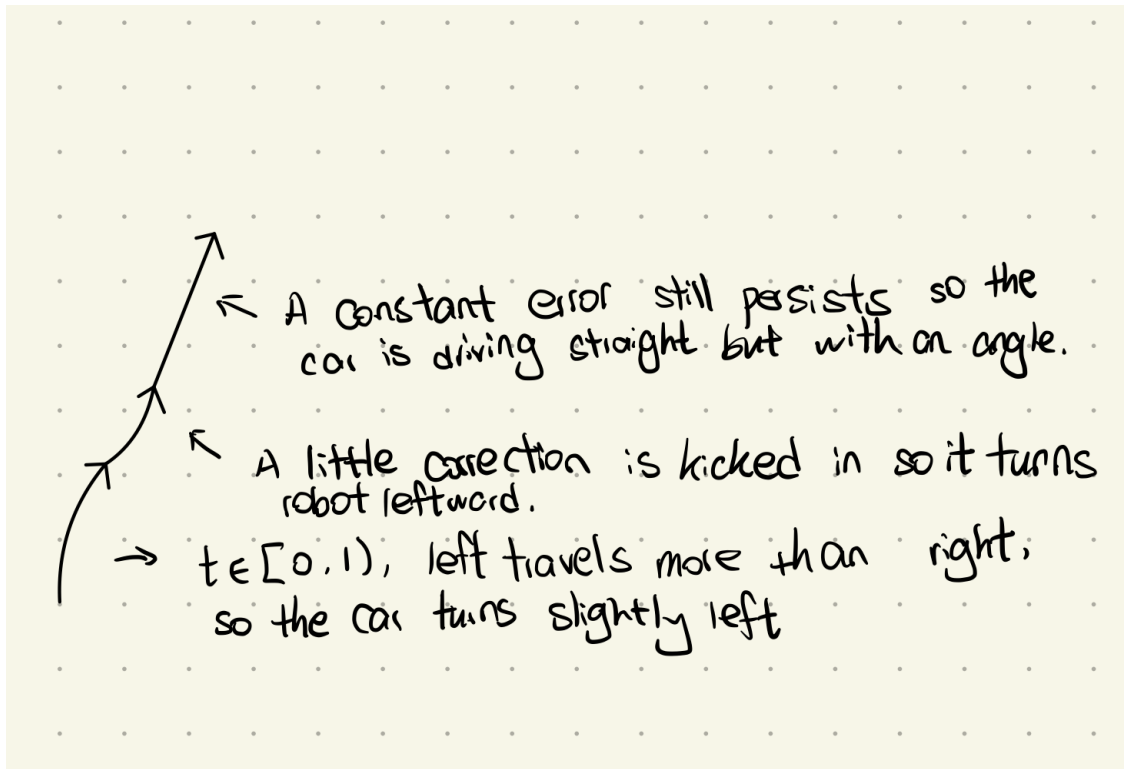 A constant error still persists so the
car is driving straight but with an angle.
A little correction is kicked in so it turns
robot leftward.
t ∈ [0, 1), left travels more than right,
so the car turns slightly left